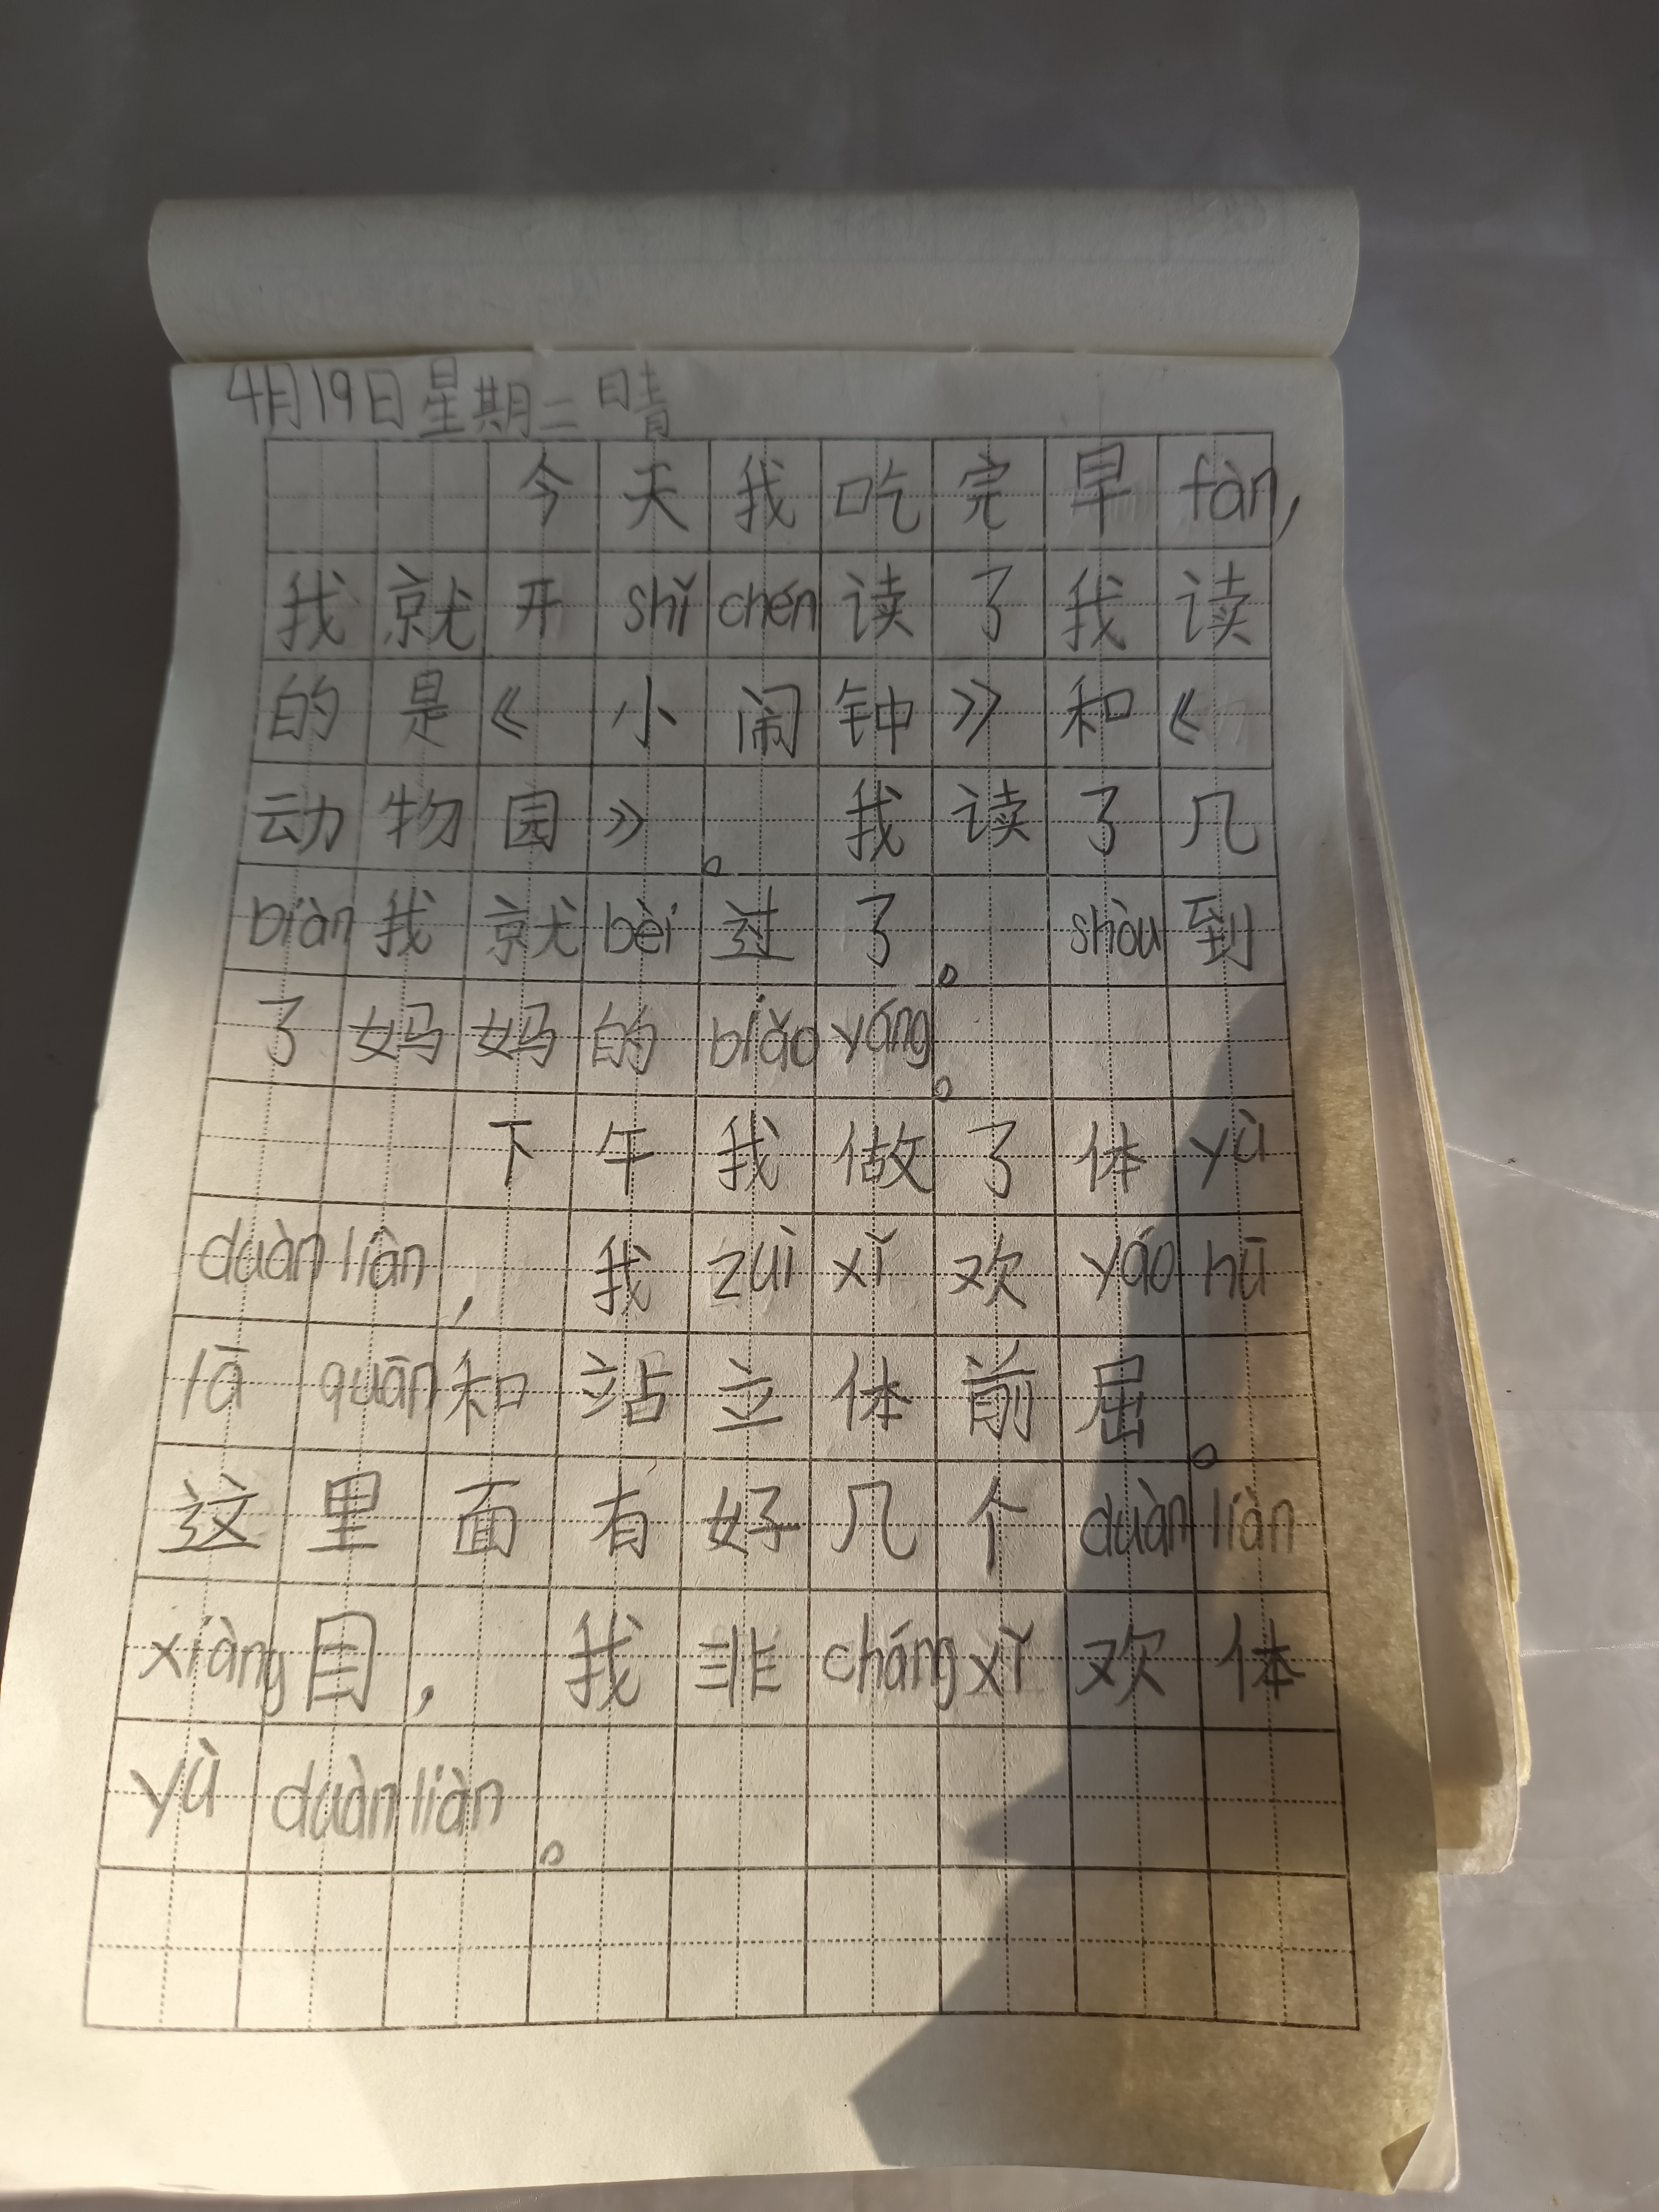 4月19日星期二 晴
今天我吃完早fàn,
我就开shǐchén读了我读
的是《小闹钟》和《
动物园》。我读了几
biàn我就bèi过了。shòu到
了妈妈的biǎoyáng。
下午我做了体yù
duànliàn,我zuìxǐ欢yáohū
lāquān和站立体前屈。
这里面有好几个duànliàn
xiàng目,我非chángxǐ欢体
yùduànliàn。